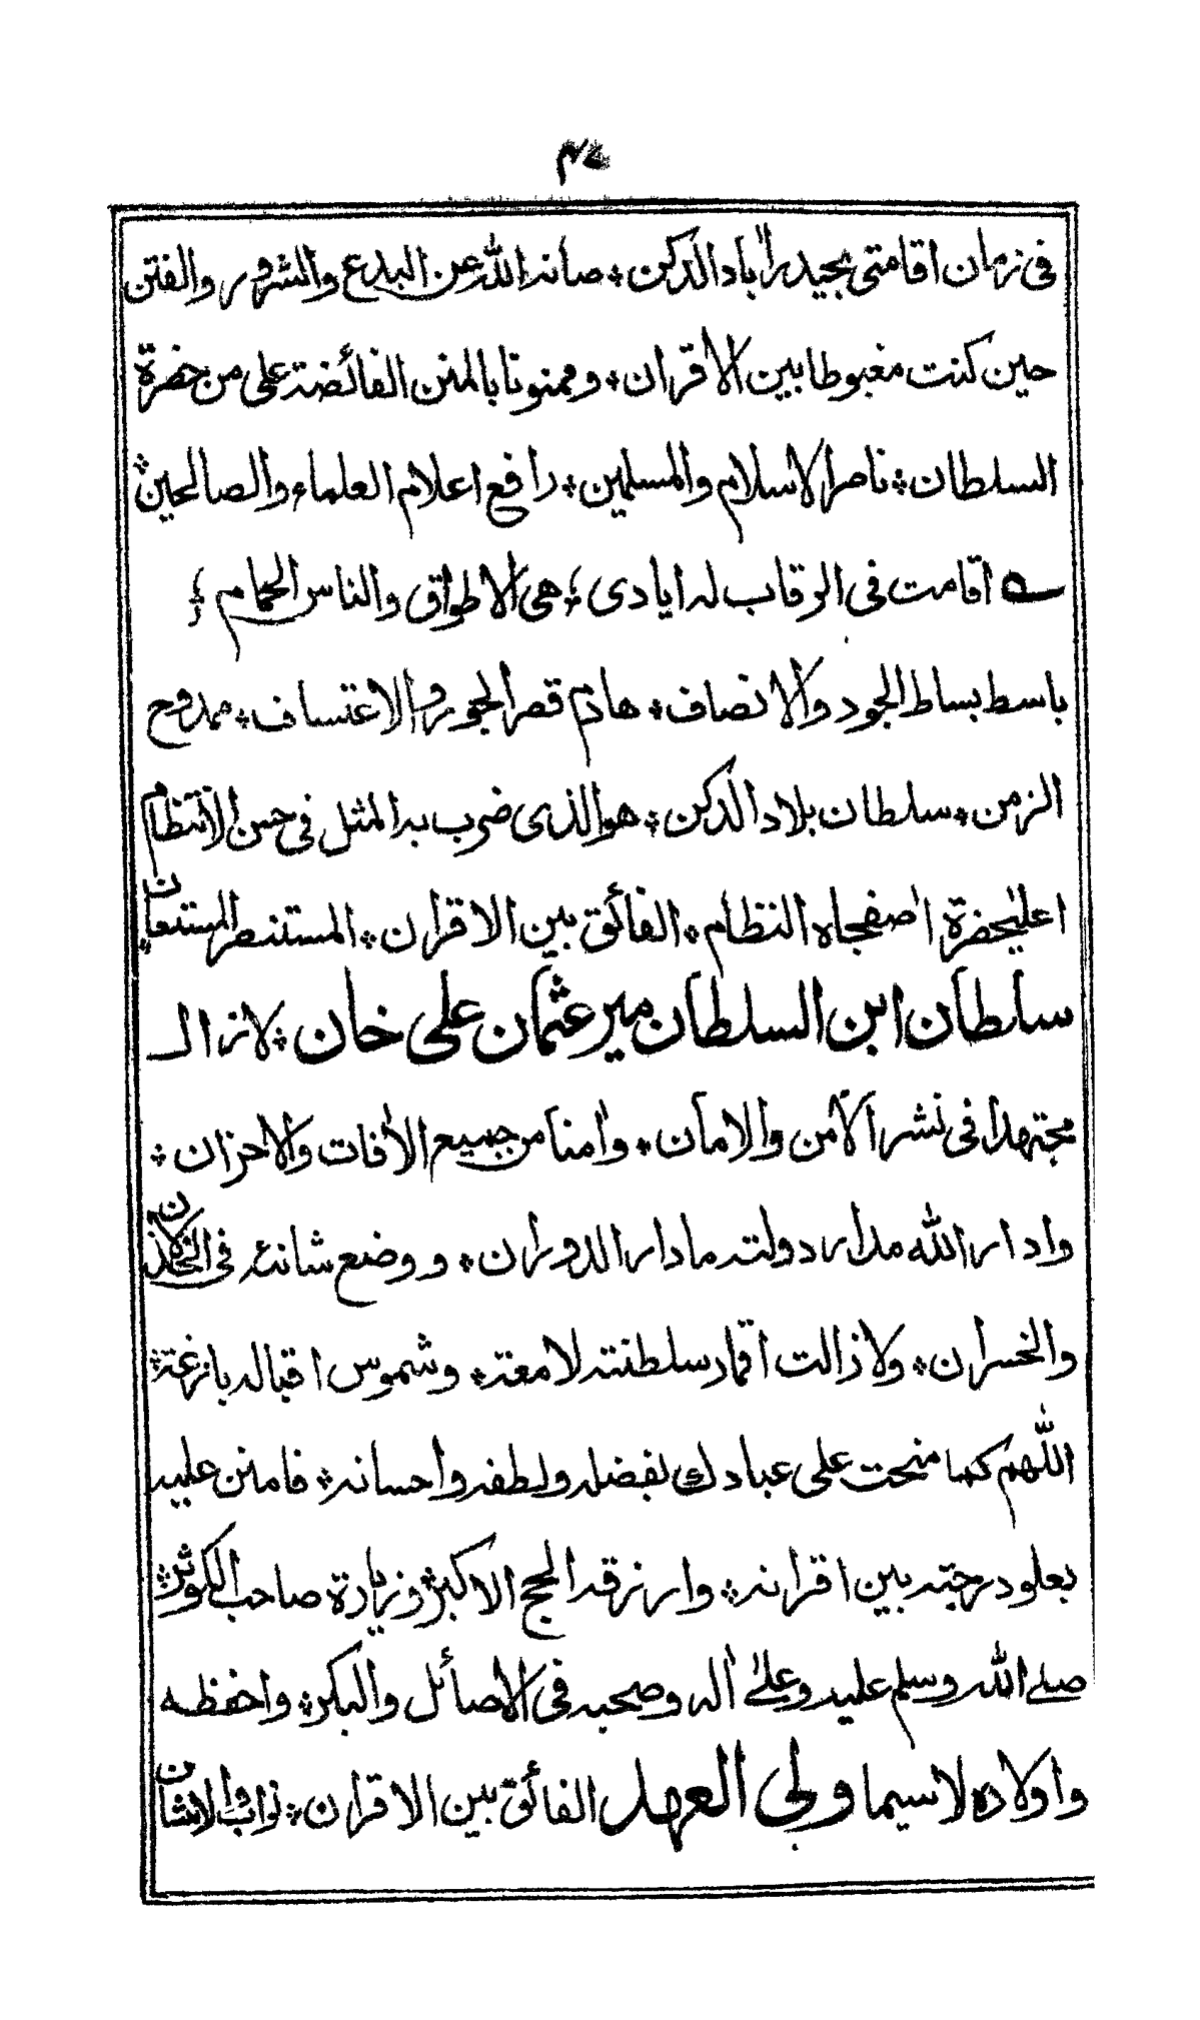 في زمان اقامتى بحيدرآباد الدكن ٭ صانه الله عن البدع والشرور والفتن
حين كنت مغبوطا بين الاقران ٭ وممنونا بالمنن الفائضة على من حضرة
السلطان ٭ ناصر الاسلام والمسلمين ٭ رافع اعلام العلماء والصالحين ٭
اقامت فى الرقاب له ايادى ؛ هى الاطواق والناس الحمام ؛
باسط بساط الجود والانصاف ٭ هادم قصر الجور والاعتساف ٭ ممدوح
الزمن ٭ سلطان بلاد الدكن ٭ هو الذى ضرب به المثل فى حسن الانتظام
اعليحضرة اصفجاه النظام ٭ الفائق بين الاقران ٭ المستنصر المستعان ٭
سلطان ابن السلطان مير عثمان على خان ٭ لازال
مجتهدا فى نشر الامن والامان ٭ وامنا من جميع الآفات والاحزان ٭
وادار الله مدار دولته مادار الدوران ٭ ووضع شانئه فى الخذلان
والخسران ٭ ولا زالت اقمار سلطنته لامعة ٭ وشموس اقباله بازغة ٭
اللهم كما منحت على عبادك بفضله ولطفه واحسانه ٭ فامنن عليه
بعلو درجته بين اقرانه ٭ وارزقه الحج الاكبر ٭ وزيارة صاحب الكوثر ٭
صلى الله وسلم عليه وعلى اله وصحبه فى الاصائل والبكر ٭ واحفظه
واولاده لاسيما ولى العهد الفائق بين الاقران ٭ نواب والاشان